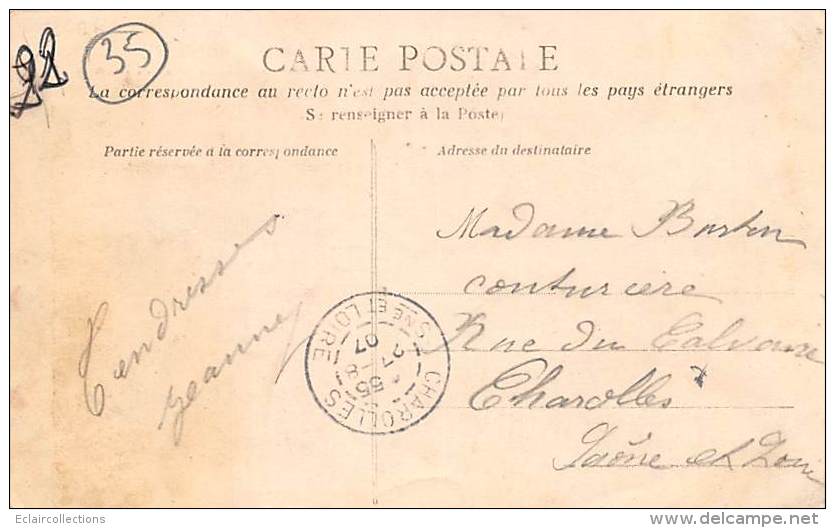 22
35
CARTE POSTALE
La correspondance au recto n'est pas acceptée par tous les pays étrangers
(Se renseigner à la Poste)
Partie réservée à la correspondance
Adresse du destinataire
Tendresses
Jeanne
Madame
couturière
Rue du Calvaire
Charolles
Saône et Loire
CHAROLLES
SNE ET LOIRE
27 - 8
07
Eclaircollections
www.delcampe.net